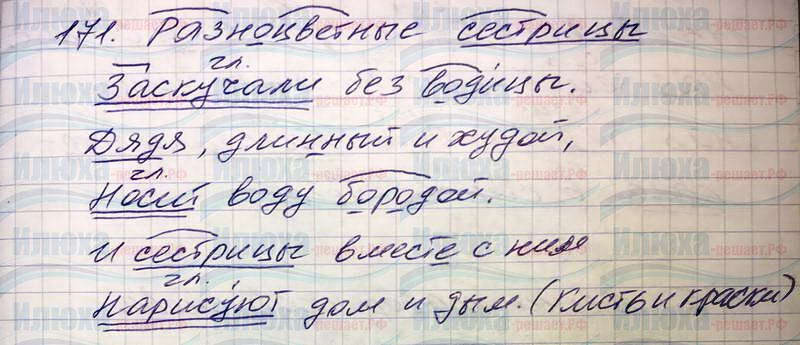 171. Разноцветные сестрицы
гл.
Заскучали без водицы.
Дядя, длинный и худой,
гл.
Носит воду бородой.
И сестрицы вместе с ним
гл.
Нарисуют дом и дым. (Кисть и краски)